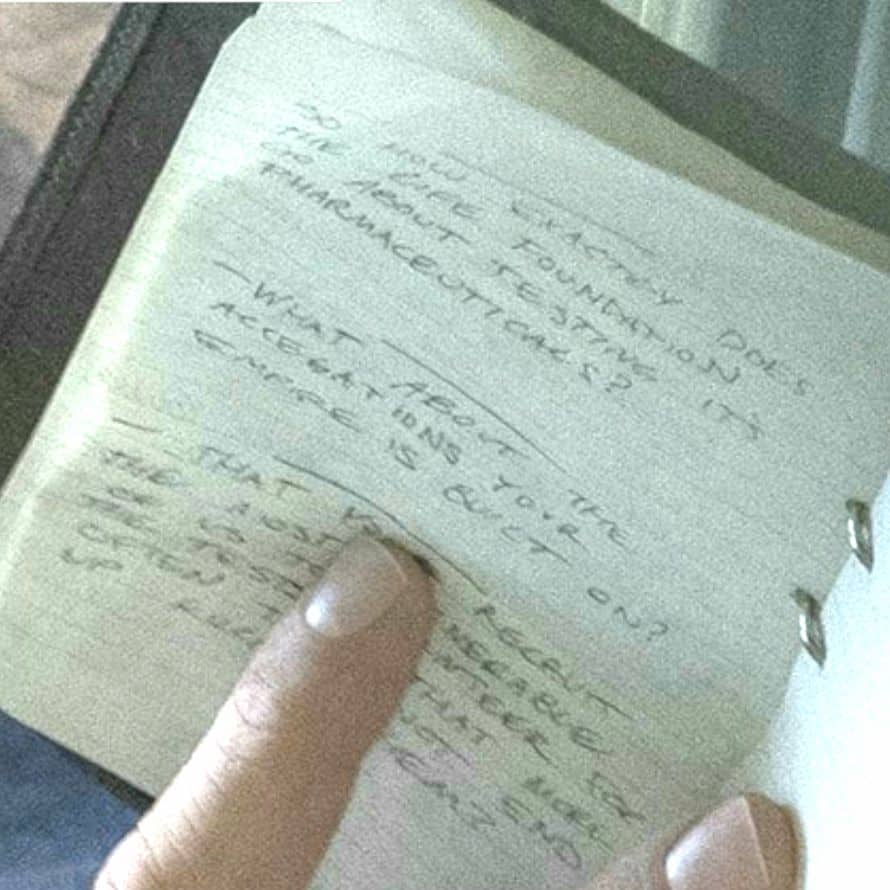 SO HOW EXACTLY DOES
THE LIFE FOUNDATION
GO ABOUT TESTING ITS
PHARMACEUTICALS?
- WHAT ABOUT THE
ALLEGATIONS YOUR
EMPIRE IS BUILT ON?
- THAT YOU RECRUIT
THE MOST
TO FOR
TESTS THAT MORE
OFTEN NOT END
UP